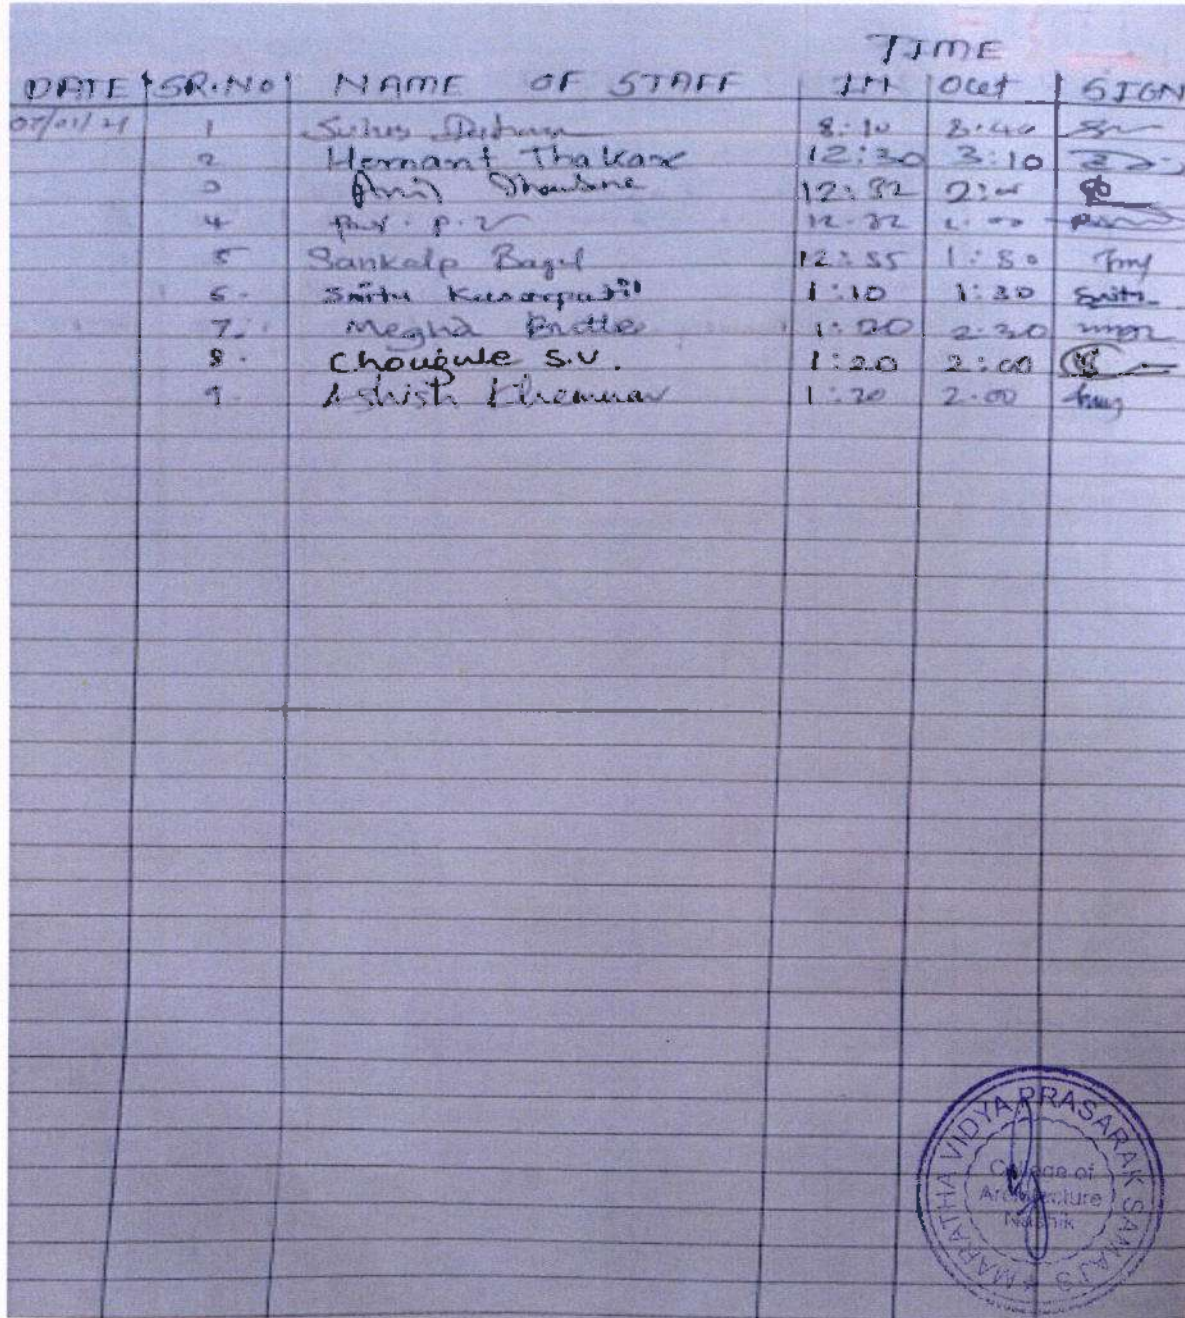 TIME
DATE SR.NO NAME OF STAFF IN Out SIGN
07/01/21 1 8:10 8:40
2 Hemant Thakare 12:30 3:10
3 Anil 12:32 2:00
4 P.V 12.32
5 Sankalp Bagul 12:55 1:50
6. Smita Kasarpatil 1:10 1:30 Smita
7. Megha 1:20 2:30
8. Chougule S.V. 1:20 2:00
9. Ashish Khemnar 1:20 2.00
MARATHA VIDYA PRASARAK SAMAJ'S
College of
Architecture
Nashik